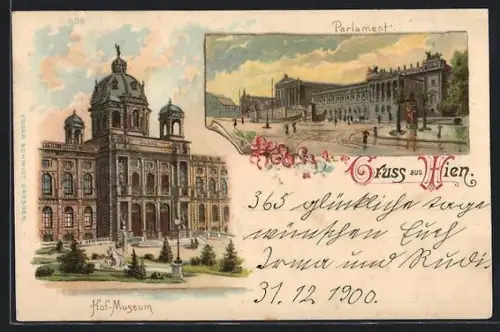 Parlament.
Gruss aus Wien.
365 glückliche tage
wünschen Euch
Irma und Rudi.
31.12 1900.
Hof-Museum
EDGAR SCHMIDT DRESDEN.